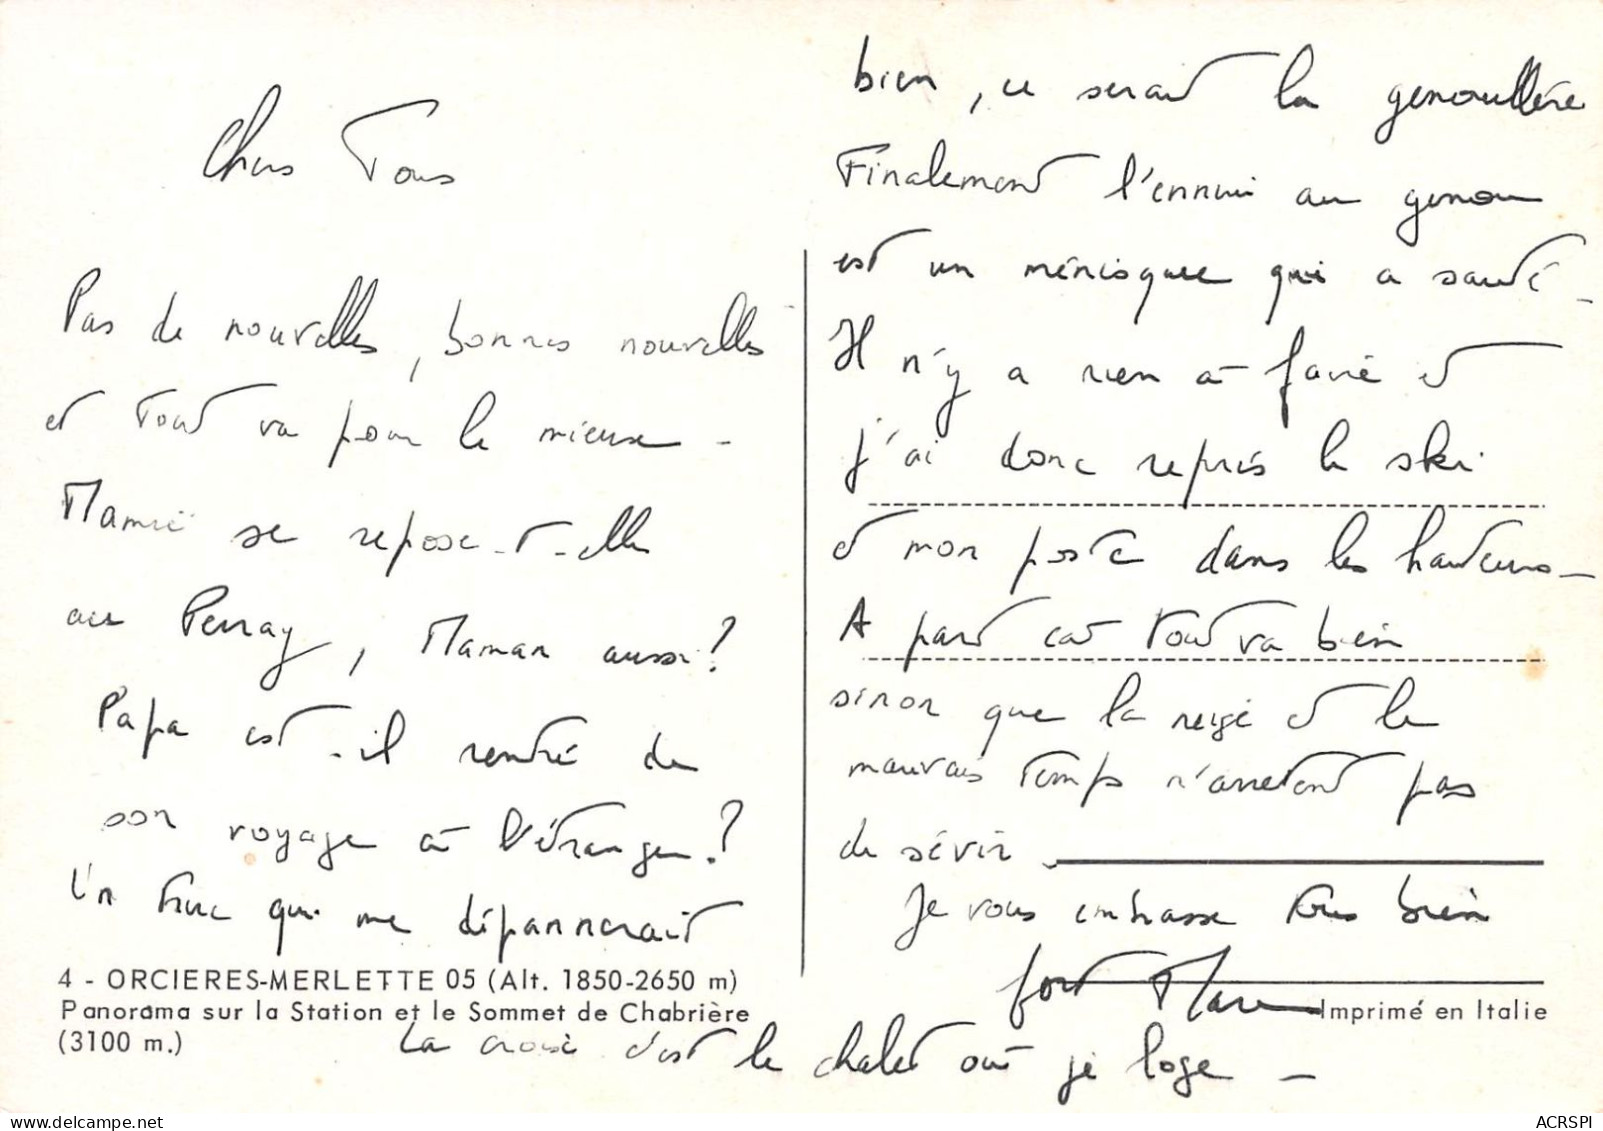 Chers Tous
Pas de nouvelles, bonnes nouvelles
et tout va pour le mieux -
Mamie se repose-t-elle
au Perray, Maman aussi?
Papa est-il rentré de
son voyage à l'étranger?
Un truc qui me dépannerait
4 - ORCIERES-MERLETTE 05 (Alt. 1850-2650 m)
Panorama sur la Station et le Sommet de Chabrière
(3100 m.)
bien, ce serait la genouillère
Finalement l'ennui au genou
est un ménisque qui a sauté -
Il n'y a rien à faire et
j'ai donc repris le ski
et mon poste dans les hauteurs -
A part cat tout va bien
sinon que la neige et le
mauvais temps n'arretent pas
de sévir
Je vous embrasse tous bien
fort Marc
Imprimé en Italie
La croix c'est le chalet où je loge -
ACRSPI